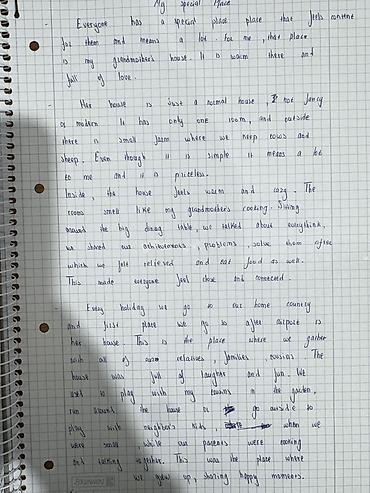 My special Place
Everyone has a special place place that feels content
for them and means a lot. For me, that place
is my grandmother's house. It is warm there and
full of love.
Her house is just a normal house, not fancy
or modern. It has only one room, and outside
there is small farm where we keep cows and
sheep. Even though it is simple it means a lot
to me and it is priceless.
Inside, the house feels warm and cozy. The
rooms smell like my grandmother's cooking. Sitting
around the big dining table, we talked about everythink,
we shared our achivements, problems, solve them after
which we felt relieved and not food as well.
This made everyone feel close and connected.
Every holiday we go to our home country
and first place we go to after airpote is
her house. This is the place where we gather
with all of our relatives, families, cousins. The
house was full of laughter and fun. We
used to play with my cousins in the garden,
run around the house or go outside to
play with neighbor's kids, when we
were small, while our parents were cooking
and talking together. This was the place where
we grew up, sharing happy moments.